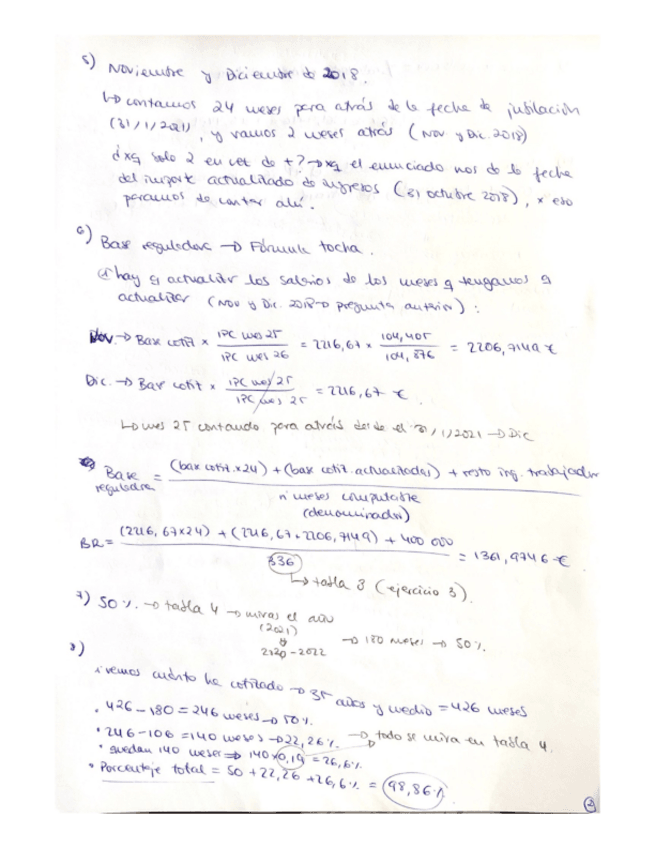 5) Noviembre y Diciembre de 2018.
↳ contamos 24 meses para atrás de la fecha de jubilación
(31/1/2021), y vamos 2 meses atrás (Nov y Dic. 2018)
¿xq solo 2 en vez de +? → xq el enunciado nos da la fecha
del importe actualizado de ingresos (31 octubre 2018), x eso
paramos de contar ahí.
6) Base reguladora → Fórmula tocha.
① hay q actualizar los salarios de los meses q tengamos q
actualizar (Nov y Dic. 2018 → pregunta anterior):
Nov. → Base cotiz × IPC mes 25 / IPC mes 26 = 2216,67 × 104,405 / 104,876 = 2206,7149 €
Dic. → Base cotiz × IPC mes 25 / IPC mes 25 = 2216,67 €.
↳ mes 25 contando para atrás desde el 31/1/2021 → Dic
Base reguladora = (base cotiz. × 24) + (base cotiz. actualizadas) + resto ing. trabajador / nº meses computable (denominador)
BR = (2216,67×24) + (2216,67+2206,7149) + 400 000 / 336 = 1361,9746 €
↳ tabla 3 (ejercicio 3).
7) 50%. → tabla 4 → miras el año (2021) → 180 meses → 50%.
2120-2022
8)
· vemos cuánto ha cotizado → 35 años y medio = 426 meses
· 426 - 180 = 246 meses → 50%.
· 246 - 106 = 140 meses → 22,26%. → todo se mira en tabla 4.
· quedan 140 meses ⇒ 140 × 0,19 = 26,6%.
· Porcentaje total = 50 + 22,26 + 26,6% = 98,86%
2